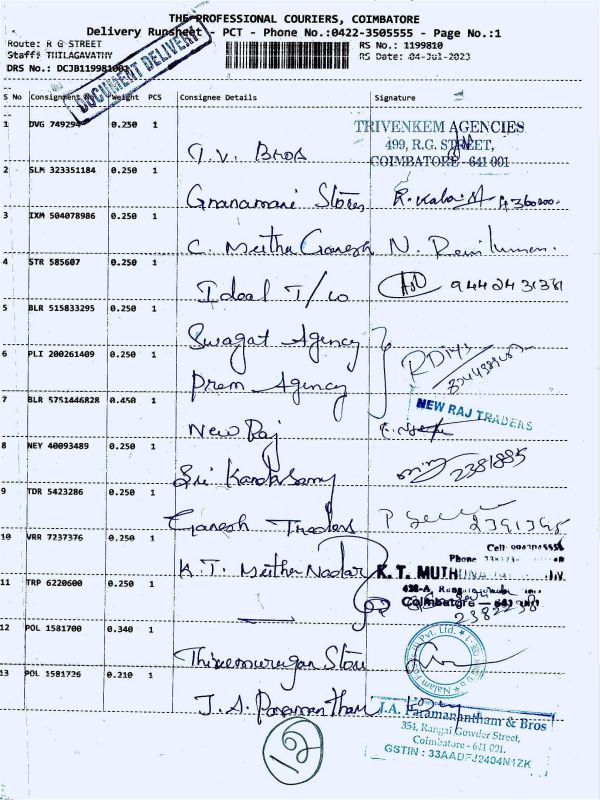 THE PROFESSIONAL COURIERS, COIMBATORE
Delivery Runsheet - PCT - Phone No.:0422-3505555 - Page No.:1
Route: R G STREET
RS No.: 1199810
Staff: THILAGAVATHY
RS Date: 04-Jul-2023
DRS No.: DCJB11998100
DOCUMENT DELIVERY
S No Consignment No Weight PCS Consignee Details Signature
1 DVG 749294 0.250 1 T.V. Bros
TRIVENKEM AGENCIES
499, R.G. STREET,
COIMBATORE - 641 001
2 SLM 323351184 0.250 1 Gnanamani Stores
3 IXM 504078986 0.250 1 C. Muthu Ganesh N.
4 STR 585607 0.250 1 Ideal T/co 9442431381
5 BLR 515833295 0.250 1 Swagat Agency
6 PLI 200261409 0.250 1 Prem Agency
7 BLR 5751446828 0.450 1 New Raj
NEW RAJ TRADERS
8 NEY 40093489 0.250 1 Sri Kandasamy 2381885
9 TDR 5423286 0.250 1 Ganesh Traders 2391395
10 VRR 7237376 0.250 1 K.T. Muthu Nadar
Cell
Phone
K. T. MUTHU
Coimbatore
11 TRP 6220600 0.250 1
12 POL 1581700 0.340 1 Thirumurugan Store
13 POL 1581726 0.210 1 J.A. Paramantham
J.A. Paramanantham & Bros
354, Rangai Gowder Street,
Coimbatore - 641 001.
GSTIN : 33AADFJ2404N1ZK
12